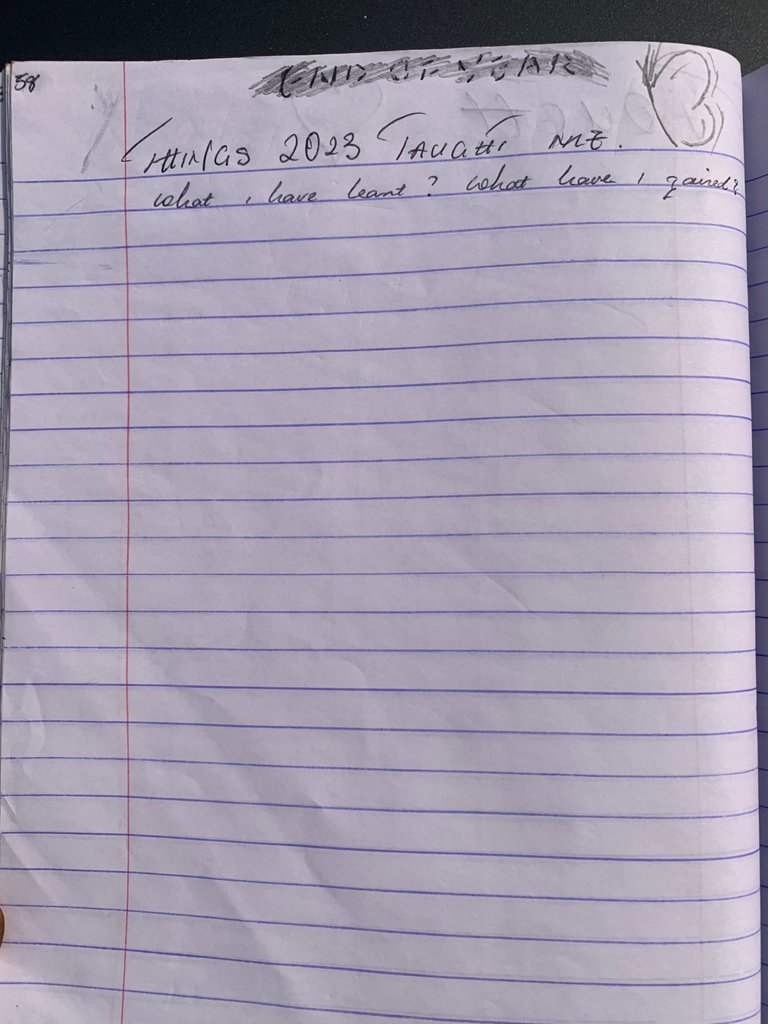 58
END OF YEAR
THINGS 2023 TAUGHT ME.
What I have leant? What have I gained?